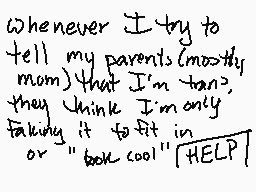 whenever I try to
tell my parents (mostly
mom) that I'm trans,
they think I'm only
faking it to fit in
or "look cool" HELP